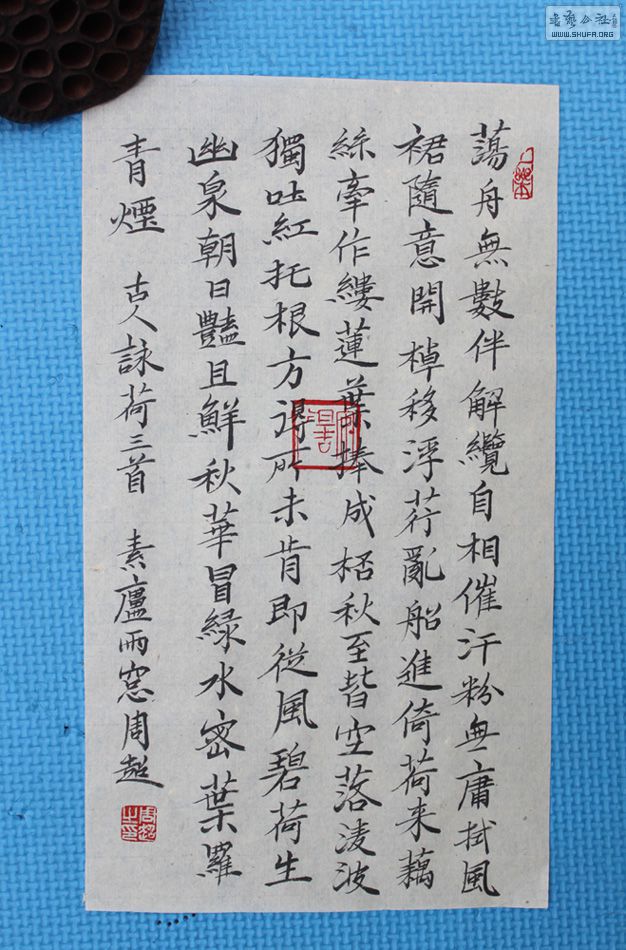 蕩舟無數伴解纜自相催汗粉無庸拭風
裙隨意開棹移浮荇亂船進倚荷来藕
絲牽作縷蓮葉捧成桮秋至皆空落淩波
獨吐紅托根方得所未肯即從風碧荷生
幽泉朝日豔且鮮秋華冒緑水密葉羅
青煙 古人詠荷三首 素廬雨窓周超
周超之印
書藝公社
WWW.SHUFA.ORG